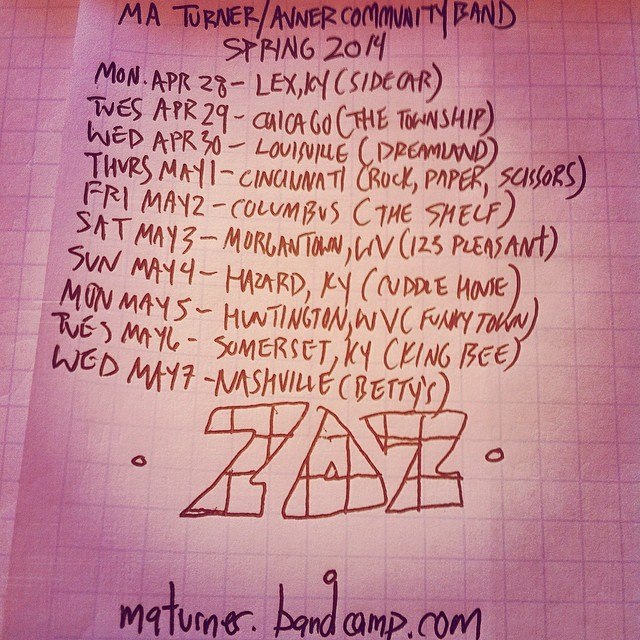 MA TURNER/AVNER COMMUNITY BAND
SPRING 2014
MON. APR 28 - LEX, KY (SIDECAR)
TUES APR 29 - CHICAGO (THE TOWNSHIP)
WED APR 30 - LOUISVILLE (DREAMLAND)
THURS MAY 1 - CINCINNATI (ROCK, PAPER, SCISSORS)
FRI MAY 2 - COLUMBUS (THE SHELF)
SAT MAY 3 - MORGANTOWN, WV (123 PLEASANT)
SUN MAY 4 - HAZARD, KY (HOUSE)
MON MAY 5 - HUNTINGTON, WV (FUNKY TOWN)
TUES MAY 6 - SOMERSET, KY (KING BEE)
WED MAY 7 - NASHVILLE (BETTY'S)
ZAZ
maturner.bandcamp.com